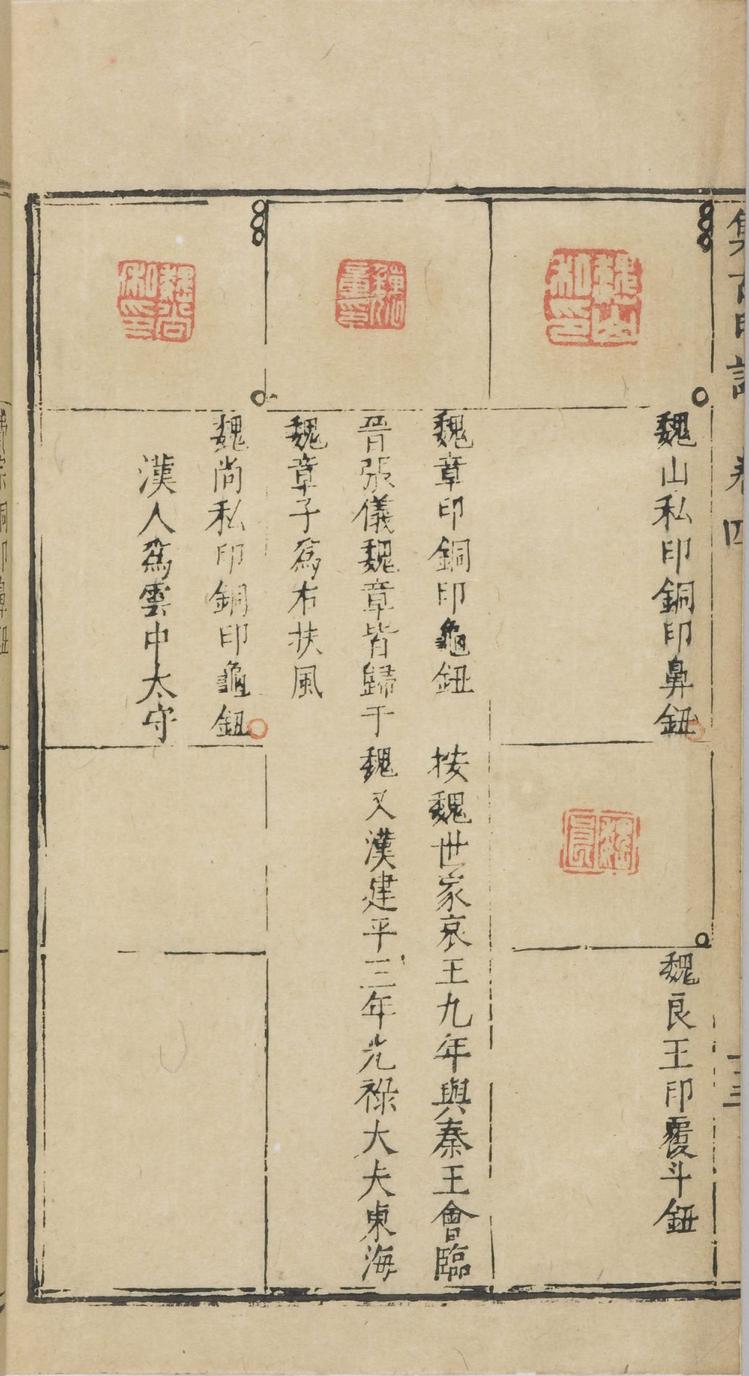 集古印譜 卷四
魏山私印銅印鼻鈕
魏山私印
魏良王印覆斗鈕
魏良
魏章印銅印龜鈕 按魏世家哀王九年與秦王會臨
晉張儀魏章皆歸于魏又漢建平三年光祿大夫東海
魏章子爲右扶風
魏尚私印銅印龜鈕
漢人爲雲中太守
魏尚私印